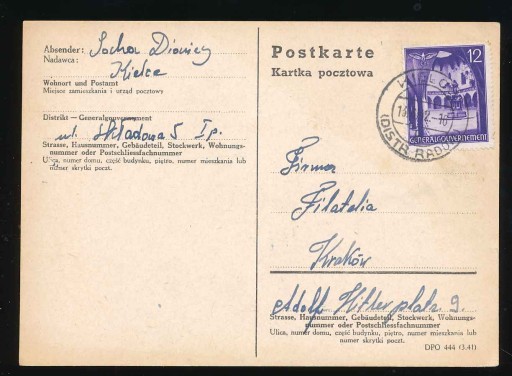 Absender: Socha Dionizy
Nadawca:
Kielce
Wohnort und Postamt
Miejsce zamieszkania i urząd pocztowy
Distrikt — Generalgouvernement
ul. Składowa 5 I p.
Strasse, Hausnummer, Gebäudeteil, Stockwerk, Wohnungs-
nummer oder Postschliessfachnummer
Ulica, numer domu, część budynku, piętro, numer mieszkania lub
numer skrytki poczt.
Postkarte
Kartka pocztowa
12
GENERALGOUVERNEMENT
(DISTR. RADOM
Firma
Filatelia
Kraków
Adolf Hitler platz 9.
Strasse, Hausnummer, Gebäudeteil, Stockwerk, Wohnungs-
nummer oder Postschliessfachnummer
Ulica, numer domu, część budynku, piętro, numer mieszkania lub
numer skrytki poczt.
DPO 444 (3.41)